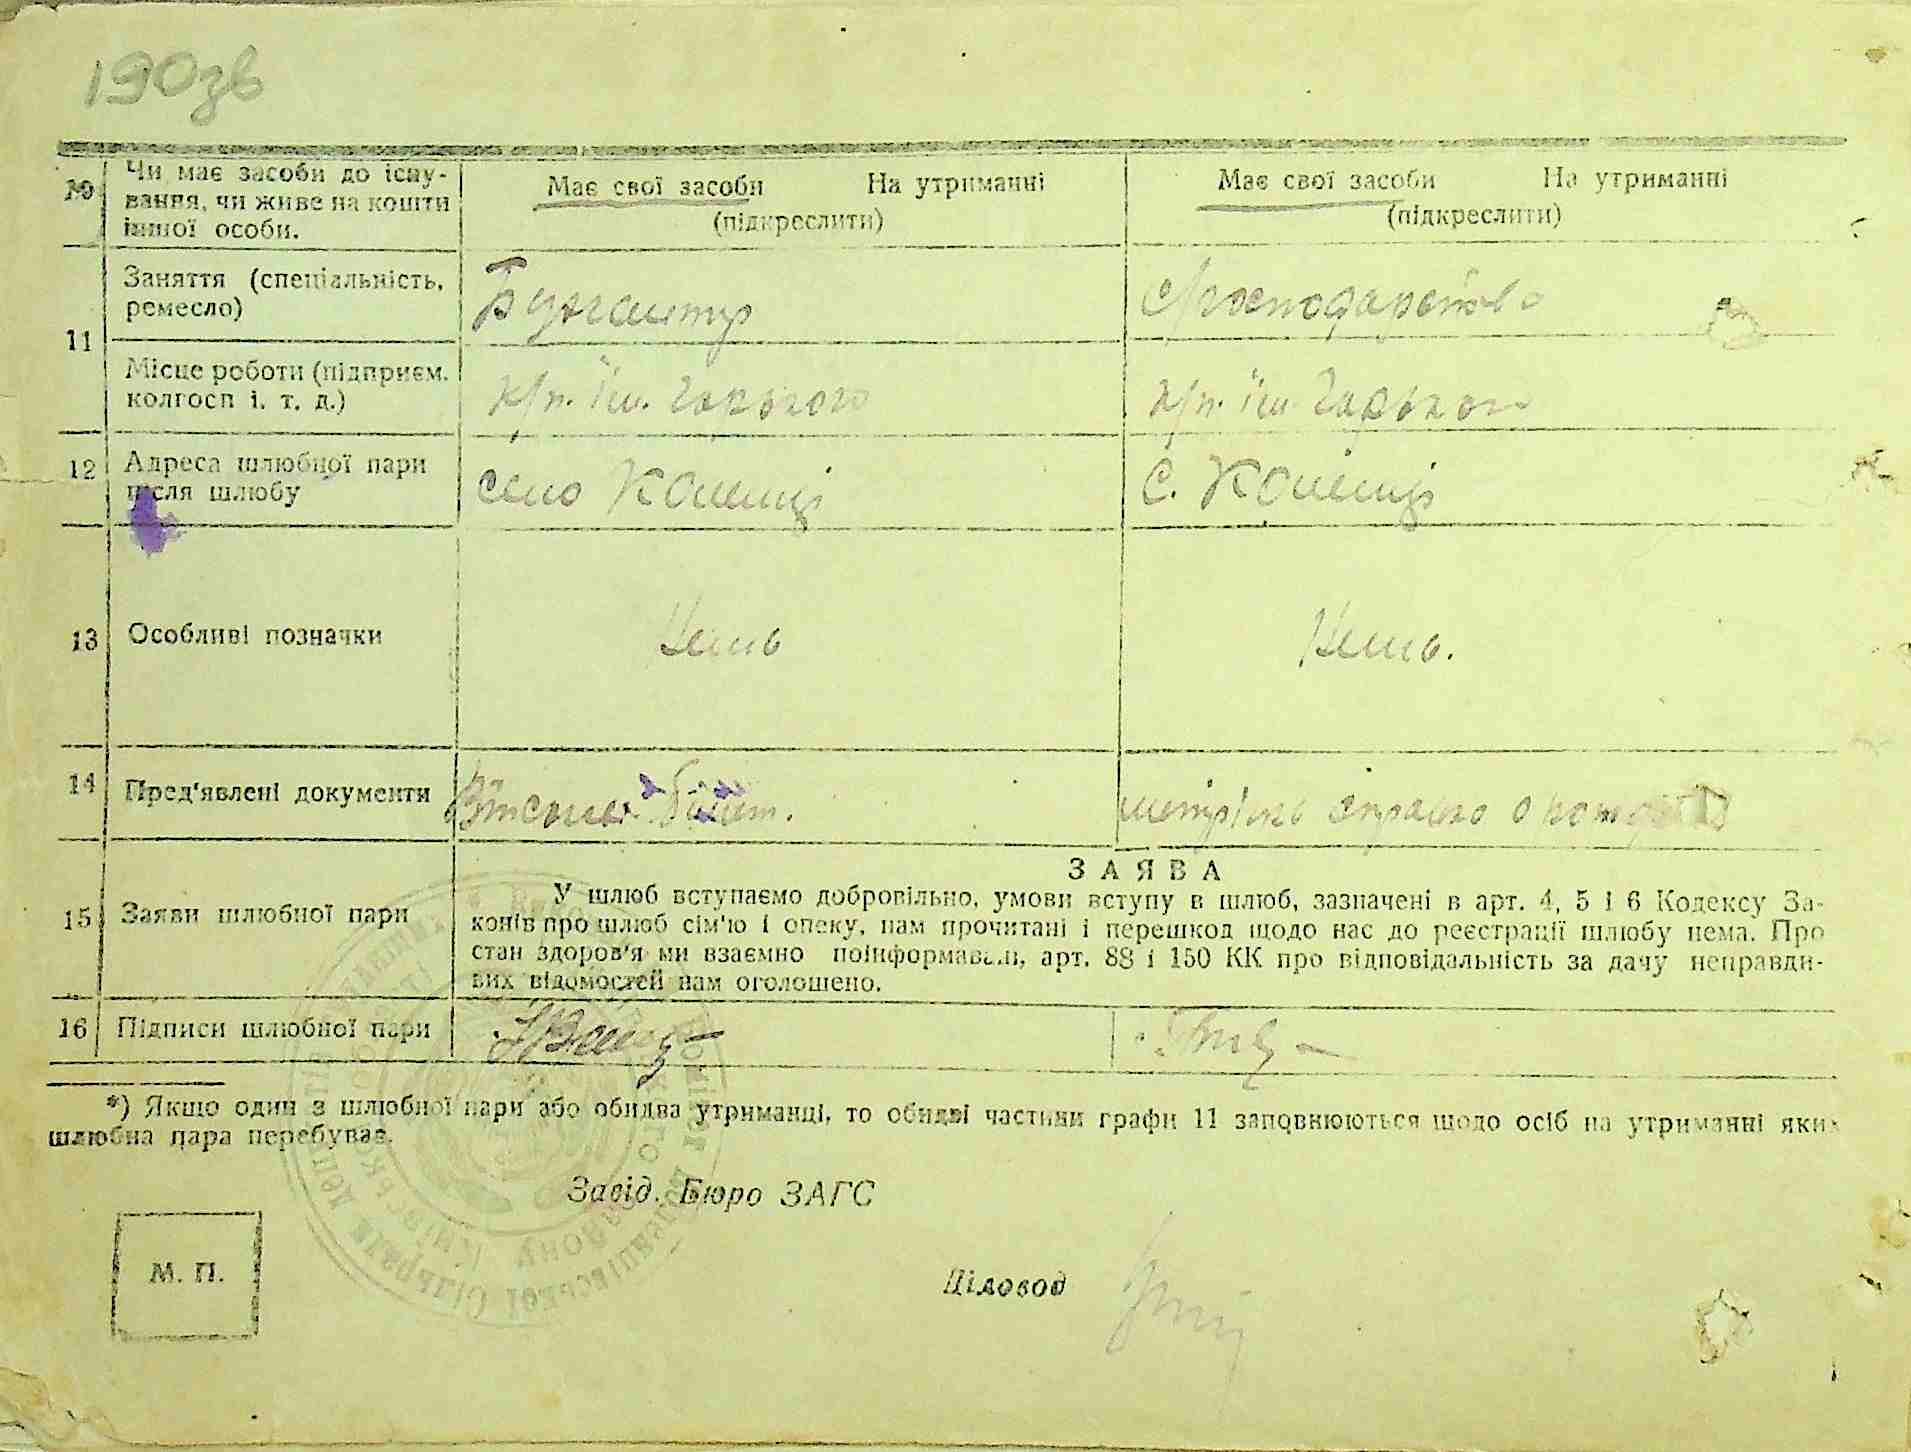 190зв
10 Чи має засоби до існу-
вання, чи живе на кошти
іншої особи.
Має свої засоби На утриманні
(підкреслити)
Має свої засоби На утриманні
(підкреслити)
11 Заняття (спеціальність,
ремесло)
Бухгалтир
с/господарство
Місце роботи (підприєм.
колгосп і. т. д.)
к/п. ім. Горького
к/п. ім. Горького
12 Адреса шлюбної пари
після шлюбу
село
с.
13 Особливі позначки
Нема
Нема.
14 Пред'явлені документи
білет.
справка о
15 Заяви шлюбної пари
ЗАЯВА
У шлюб вступаємо добровільно, умови вступу в шлюб, зазначені в арт. 4, 5 і 6 Кодексу За-
конів про шлюб сім'ю і опеку, нам прочитані і перешкод щодо нас до реєстрації шлюбу нема. Про
стан здоров'я ми взаємно поінформавалі, арт. 88 і 150 КК про відповідальність за дачу неправди-
вих відомостей нам оголошено.
16 Підписи шлюбної пари
*) Якщо один з шлюбної пари або обидва утриманці, то обидві частини графи 11 заповнюються щодо осіб на утриманні яких
шлюбна пара перебуває.
Завід. Бюро ЗАГС
М. П.
Діловод